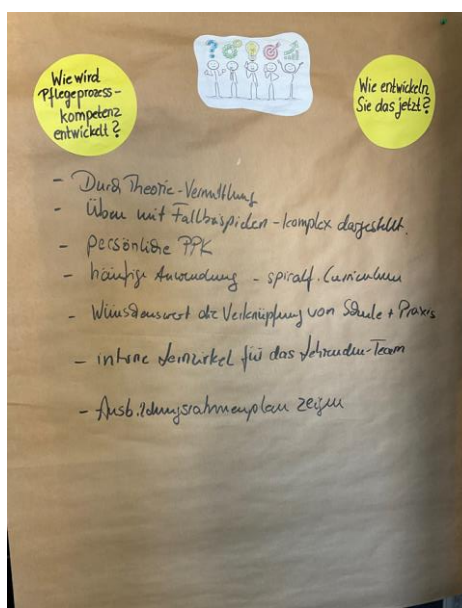 Wie wird
Pflegeprozess-
kompetenz
entwickelt?
Wie entwickeln
Sie das jetzt?
- Durch Theorie-Vermittlung
- Üben mit Fallbeispielen - komplex dargestellt.
- persönliche PPK
- häufige Anwendung - spiralf. Curriculum
- Wünschenswert die Verknüpfung von Schule + Praxis
- interne Lernzirkel für das Lehrenden-Team
- Ausbildungsrahmenplan zeigen